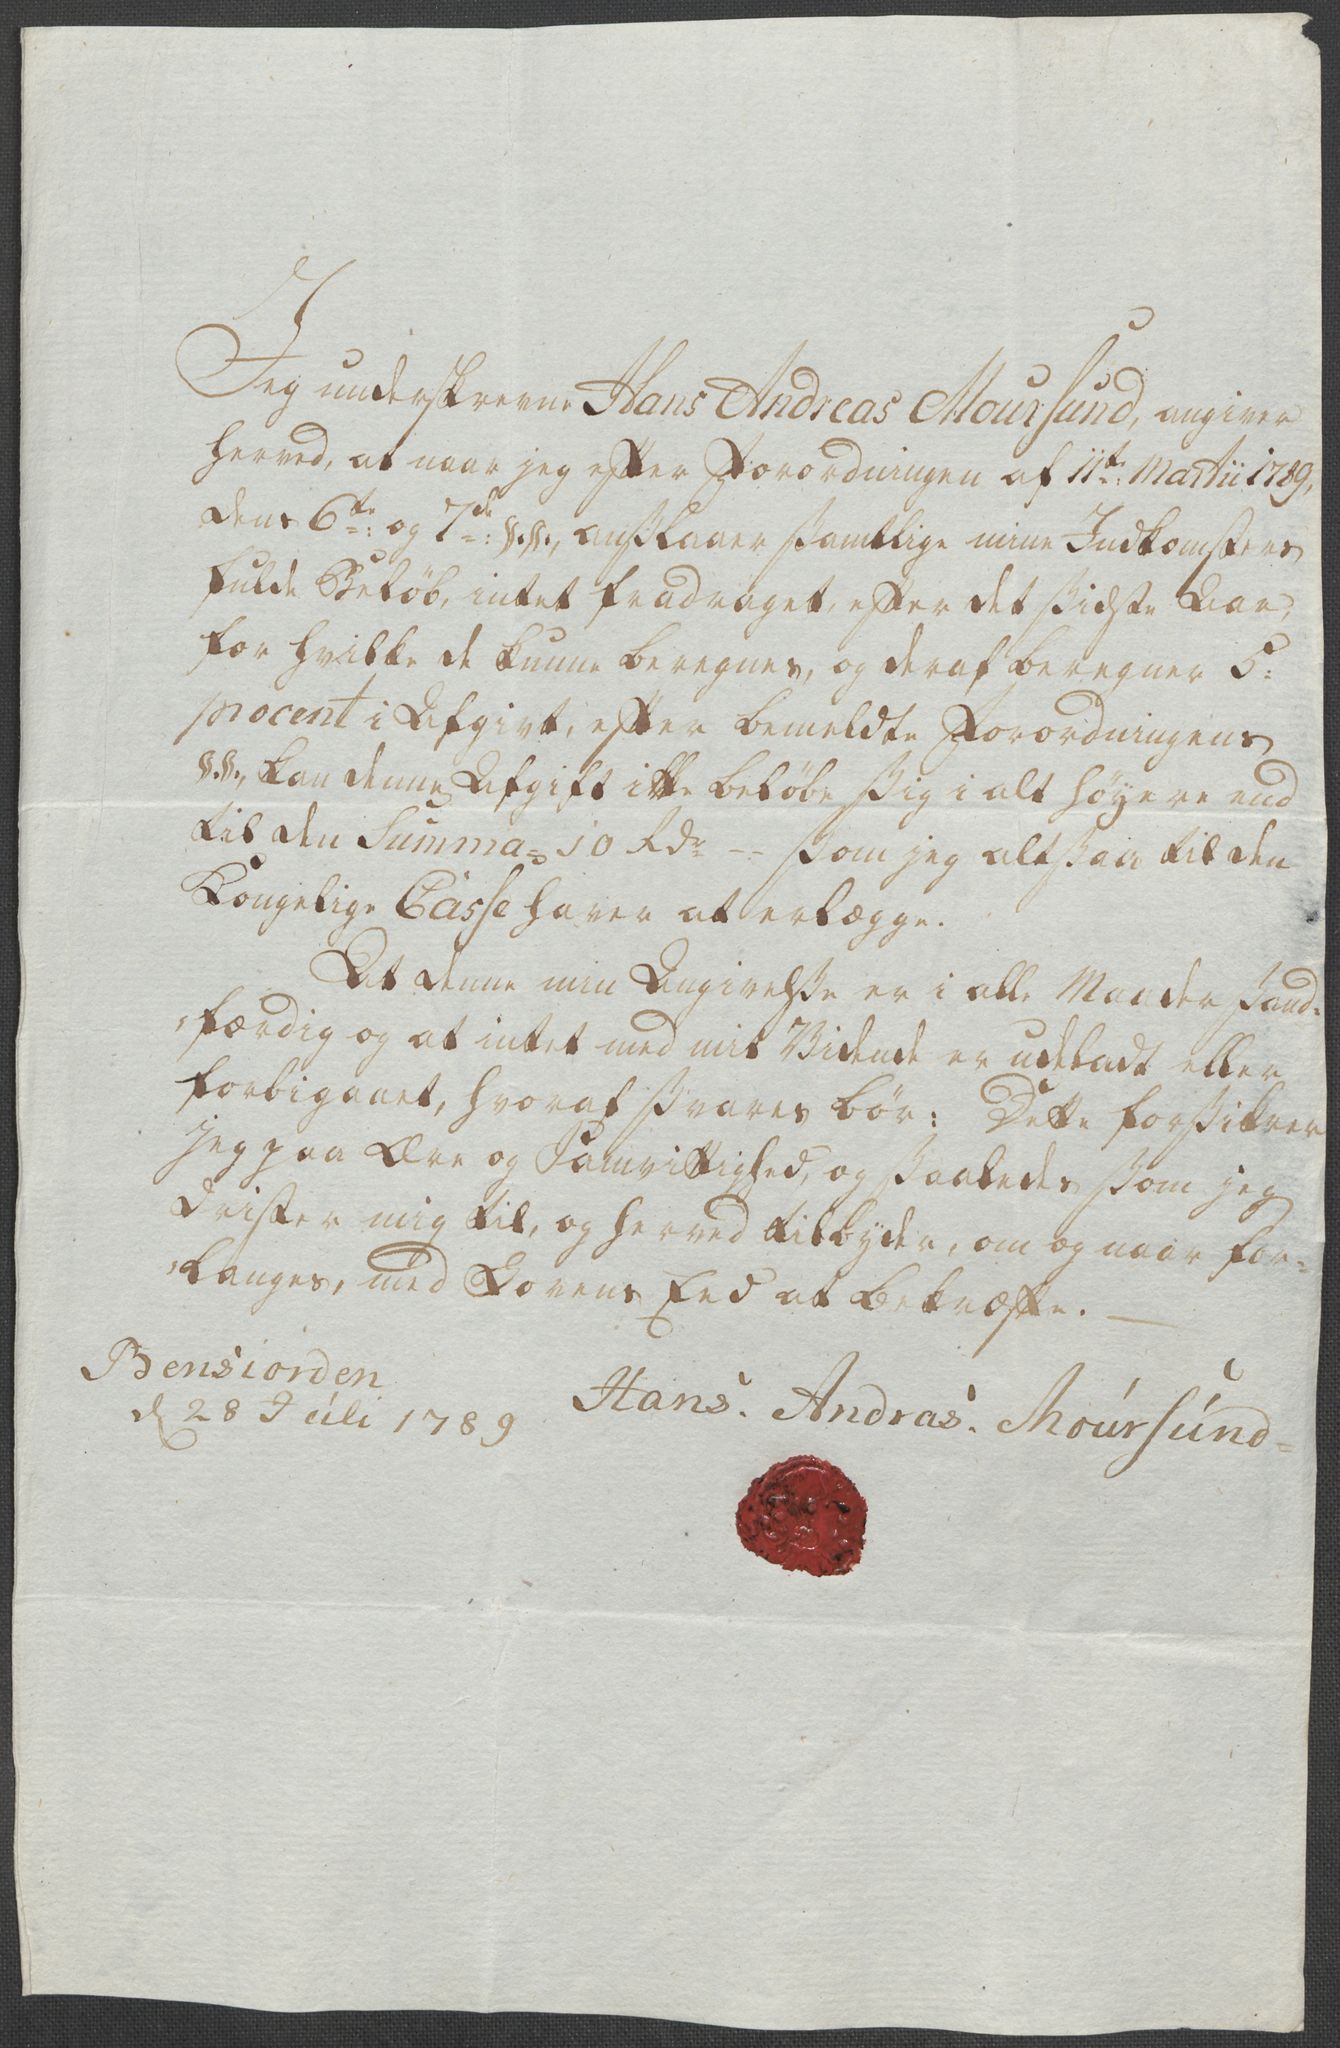 Jeg underskrevne Hans Andreas Moursund, angiver
herved, at naar jeg efter Forordningen af 11te Martii 1789,
dens 6te: og 7de: §.§., anslaaer samtlige mine Indkomsters
fulde Beløb, intet fradraget, efter det sidste Aar,
for hvilke de kunne beregnes, og deraf beregner 5:
procent i Afgivt, efter bemeldte Forordningens
§.§., kan denne Afgift ikke beløbe sig i alt höyere end
til den Summa = 10 Rdr -- som jeg altsaa til den
Kongelige Casse haver at erlægge.
At denne min Angivelse er i alle Maader sand-
færdig og at intet med mit Vidende er udeladt eller
forbigaaet, hvoraf svares bør: Dette forsikrer
jeg paa Ære og Samvittighed, og saaledes som jeg
drister mig til, og herved tilbyder, om og naar for-
langes, med Lovens Eed at bekræfte.
Bensiorden
d 28 Juli 1789
Hans. Andras. Moursund